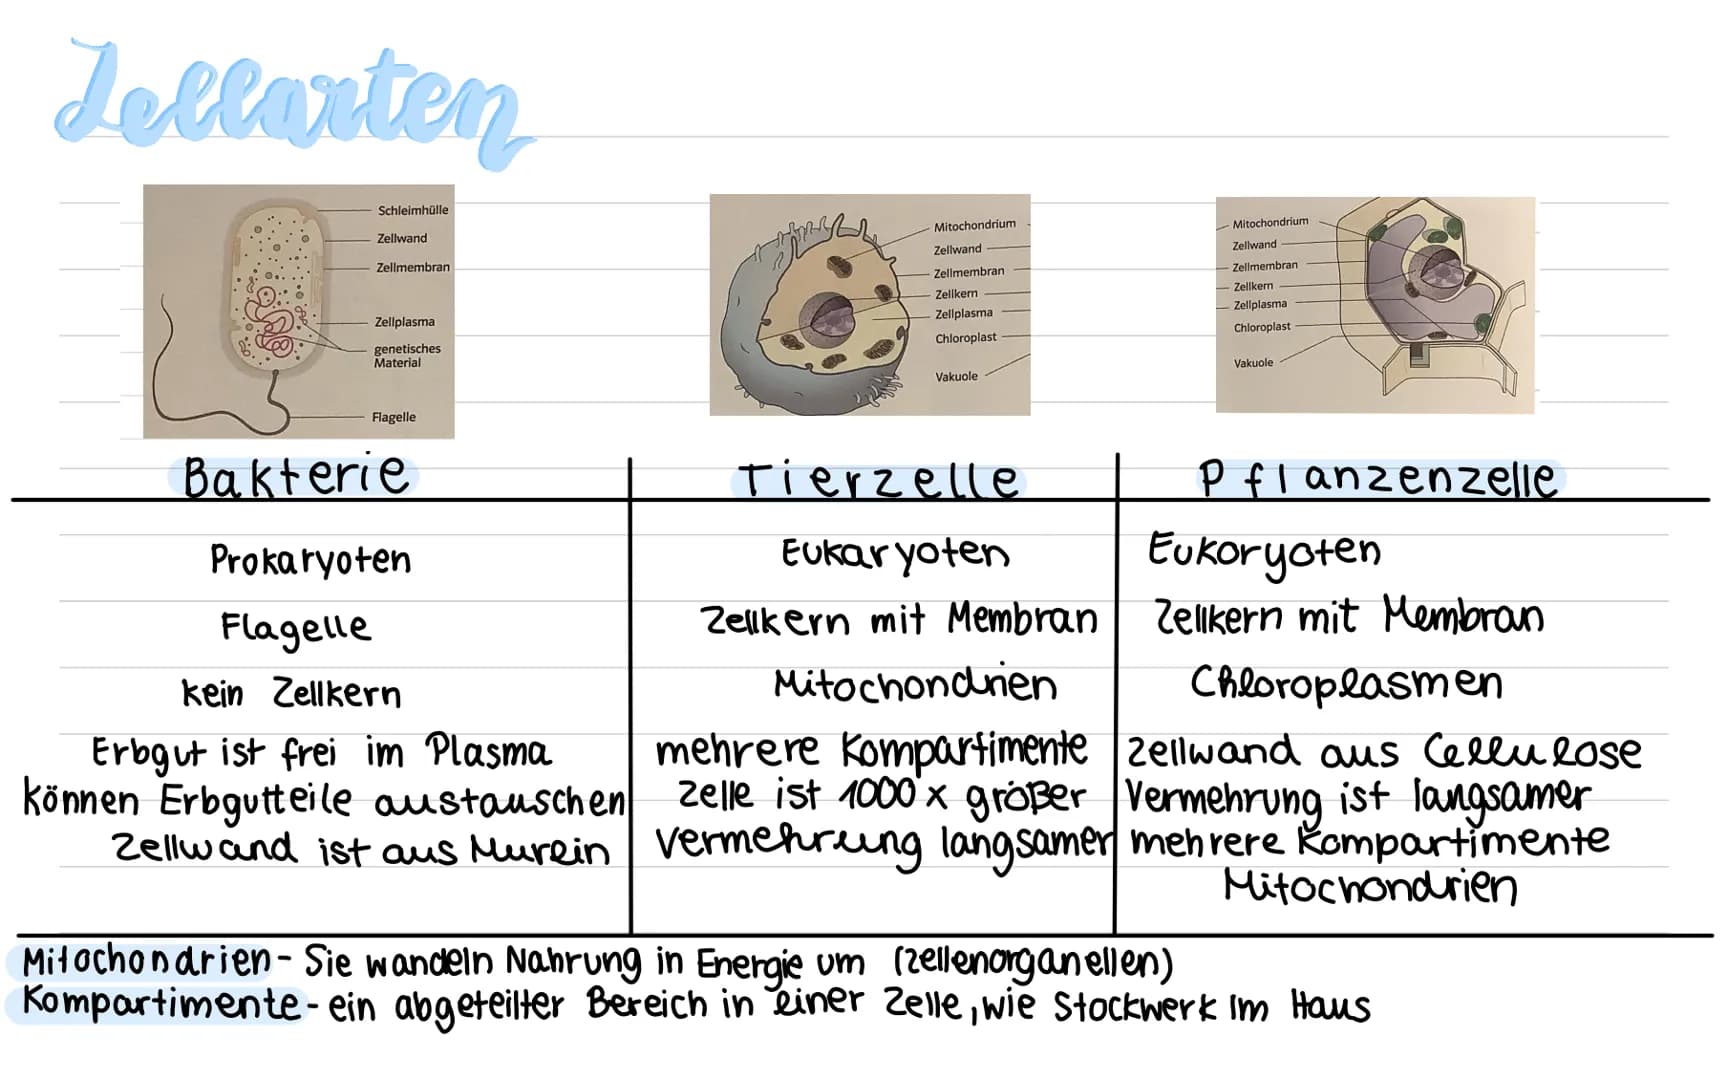 Zellarten
Schleimhülle
Zellwand
Zellmembran
Zellplasma
genetisches
Material
Flagelle
Mitochondrium
Zellwand
Zellmembran
Zellkern
Zellplasma
Chloroplast
Vakuole
Mitochondrium
Zellwand
Zellmembran
Zellkern
Zellplasma
Chloroplast
Vakuole
Bakterie
Prokaryoten
Flagelle
kein Zellkern
Erbgut ist frei im Plasma
können Erbgutteile austauschen
Zellwand ist aus Murein
Tierzelle
Eukaryoten
Zellkern mit Membran
Mitochondrien
mehrere Kompartimente
Zelle ist 1000 x größer
Vermehrung langsamer
Pflanzenzelle
Eukoryoten
Zellkern mit Membran
Chloroplasmen
Zellwand aus Cellulose
Vermehrung ist langsamer
mehrere Kompartimente
Mitochondrien
Mitochondrien - Sie wandeln Nahrung in Energie um (Zellenorganellen)
Kompartimente - ein abgeteilter Bereich in einer Zelle, wie Stockwerk im Haus